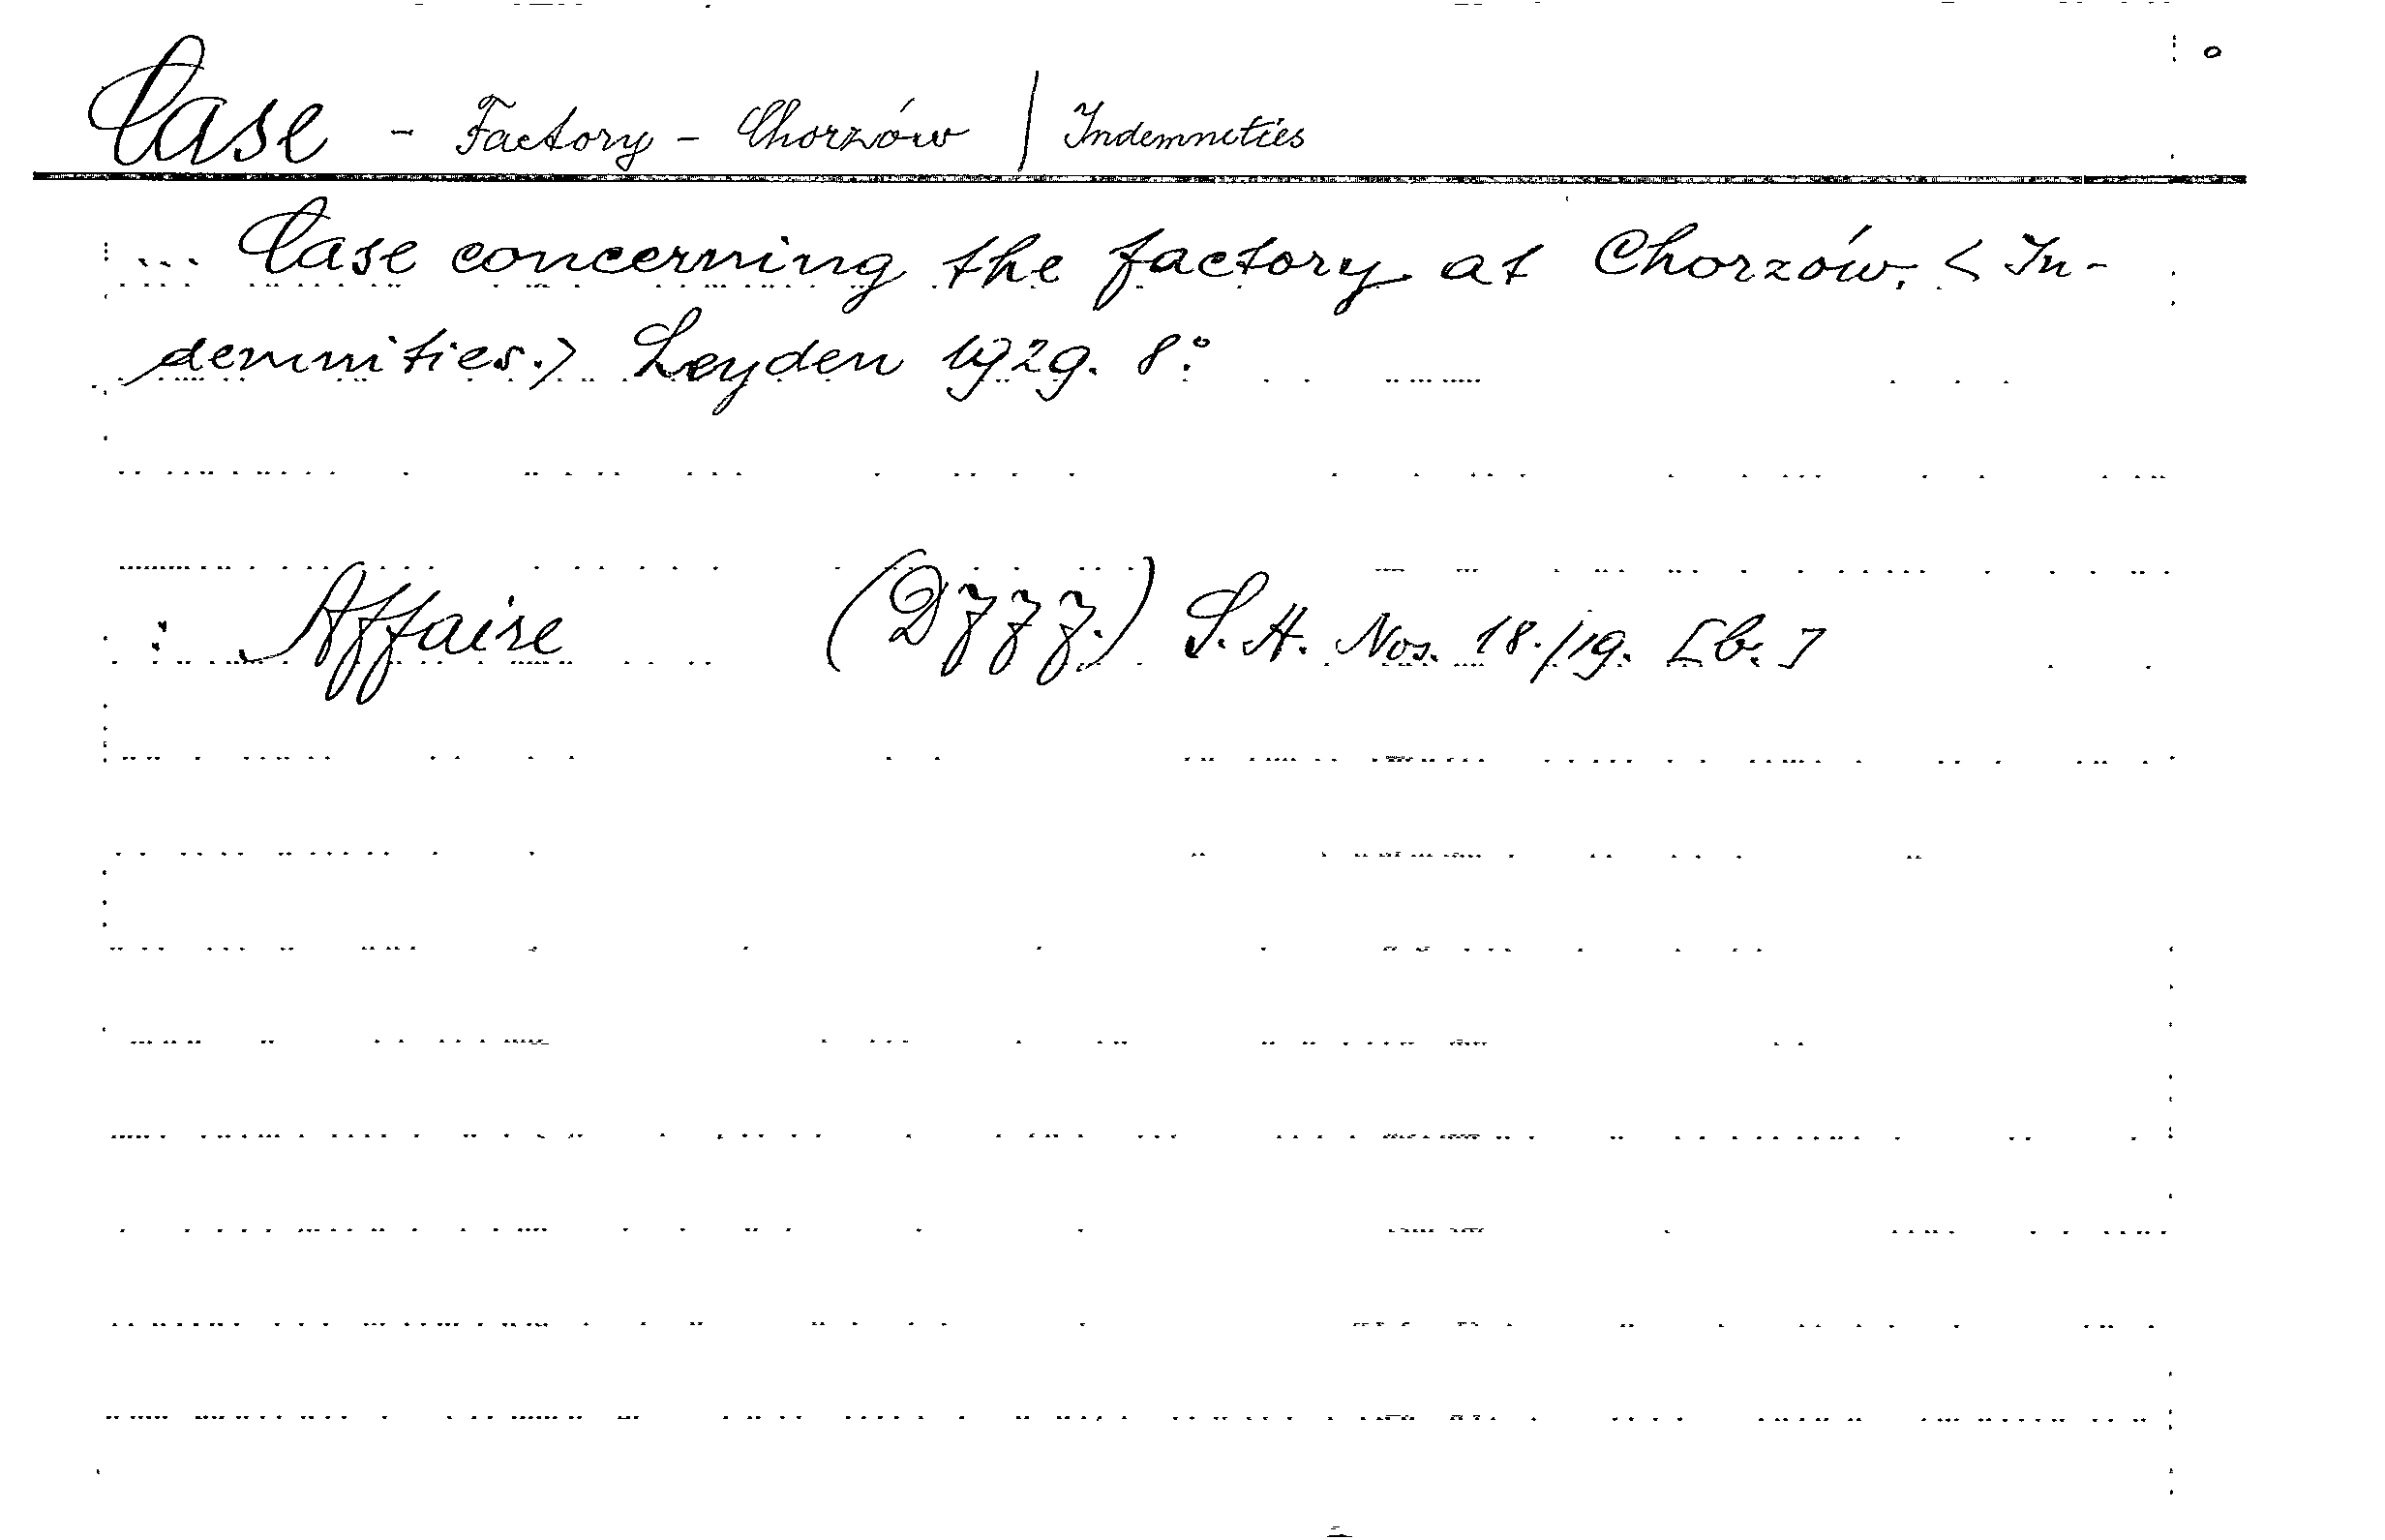 Case - Factory - Chorzów / Indemnities
... Case concerning the factory at Chorzów. < In-
demnities.> Leyden 1929. 8°
: Affaire (DJJJ.) S.H. Nos. 18./19. [b.]